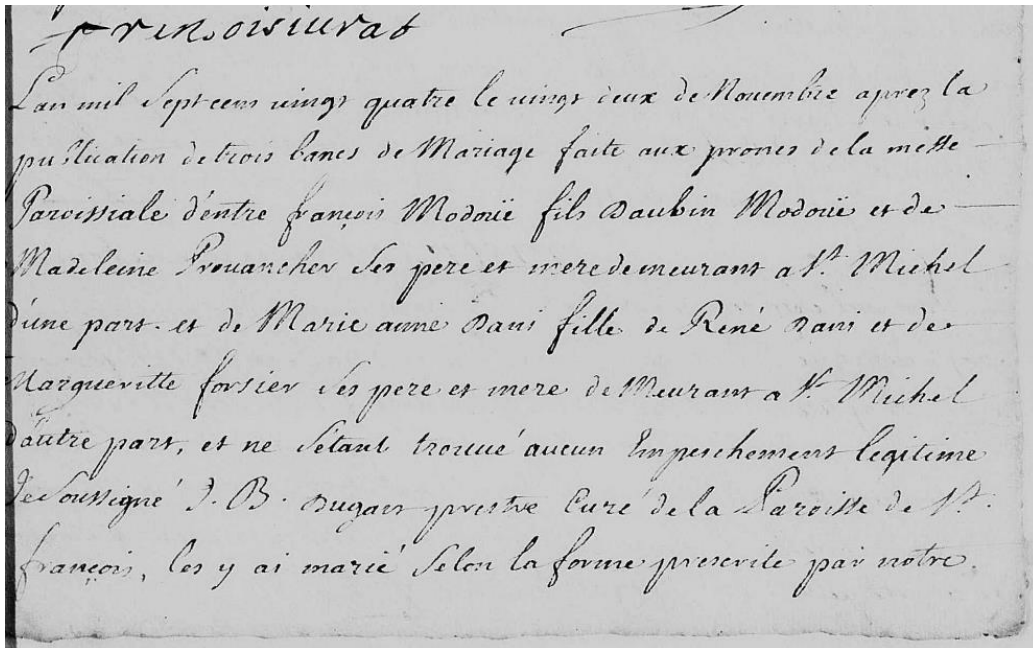 francoisiurat
Lan mil Sept cens vingt quatre le vingt deux de Novembre aprez la
publication de trois bancs de Mariage faite aux prones de la messe
Paroissiale d'entre françois Modoüe fils Daubin Modoüe et de
Madeleine Prouancher Ses pere et mere demeurant a St. Michel
d'une part. et de Marie anne Dani fille de René Dani et de
Margueritte forsier Ses pere et mere de Meurant a St. Michel
d'autre part, et ne S'étant trouué aucun Empeschement legitime
Je Soussigné J. B. Dugast prestre Curé de la Paroisse de St.
françois, les y ai marié Selon la forme prescrite par notre.